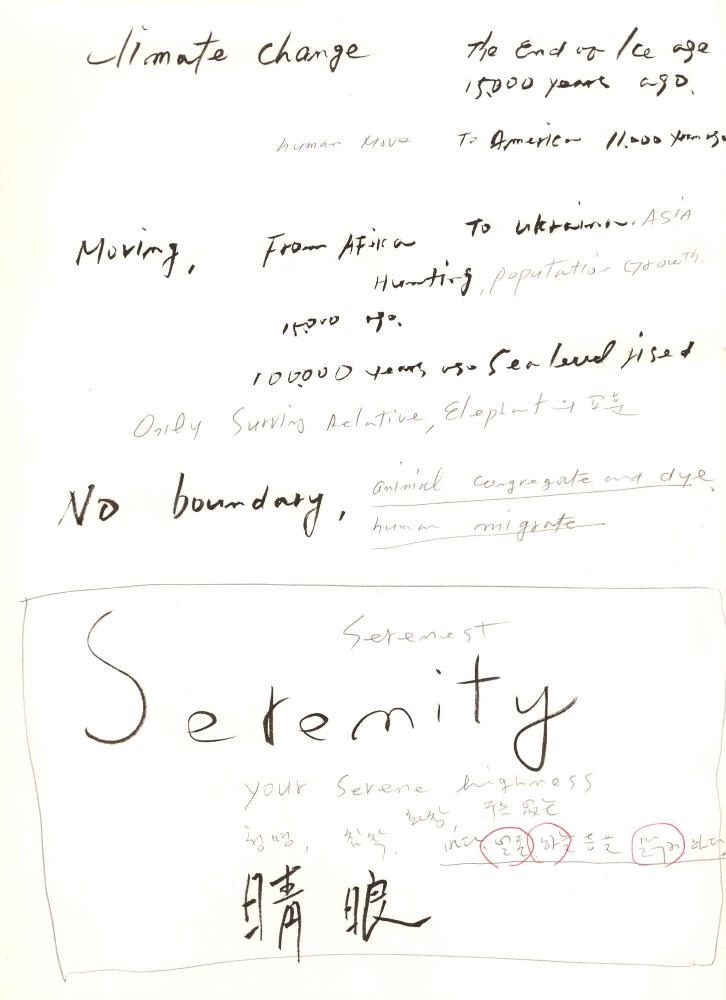 Climate change
The End of Ice age
15,000 years ago.
human Move To America 11,000 years ago
Moving, From Africa To Ukraina. ASIA
Hunting, population Growth.
15,000 ago.
100,000 years ago Sea level rised
Only Surving Relative, Elephant의
No boundary, animial congregate and dye.
human migrate
Serenest
Serenity
your Serene highness
청명, 침착, 화창, 구름 없는
바다, 얼굴, 하늘 등을 맑게 하다
晴 眼